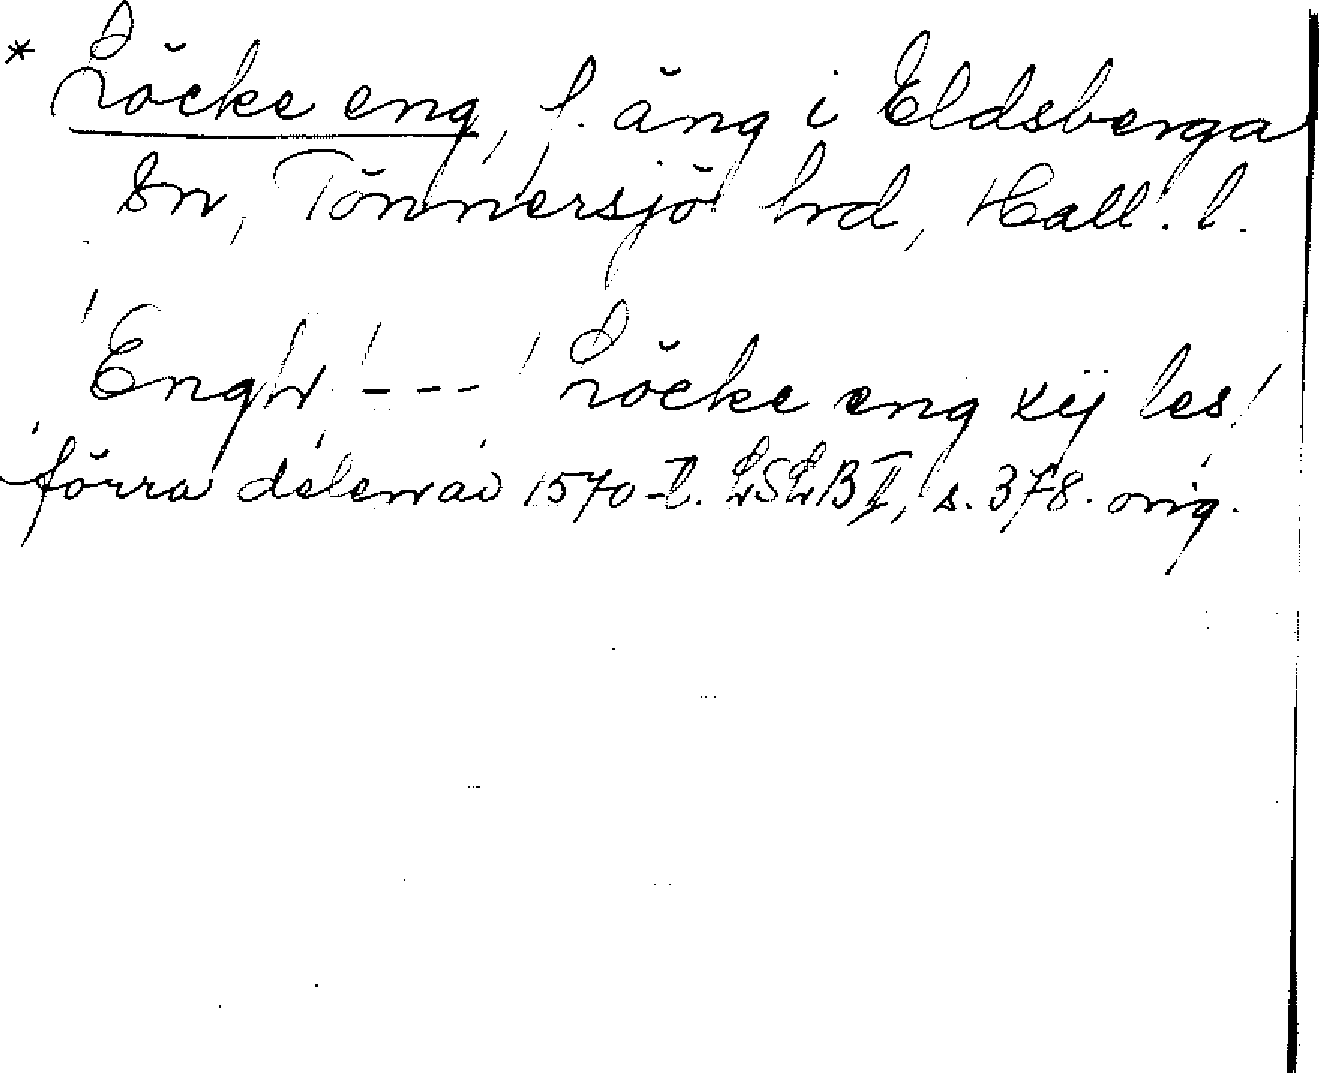 * Löcke eng, f. äng i Eldsberga
sn, Tönnersjö hrd, Hall. l.
'Engh' --- 'Löcke eng xij les'
förra delen av 1570-t. LSLB II, s. 378. orig.